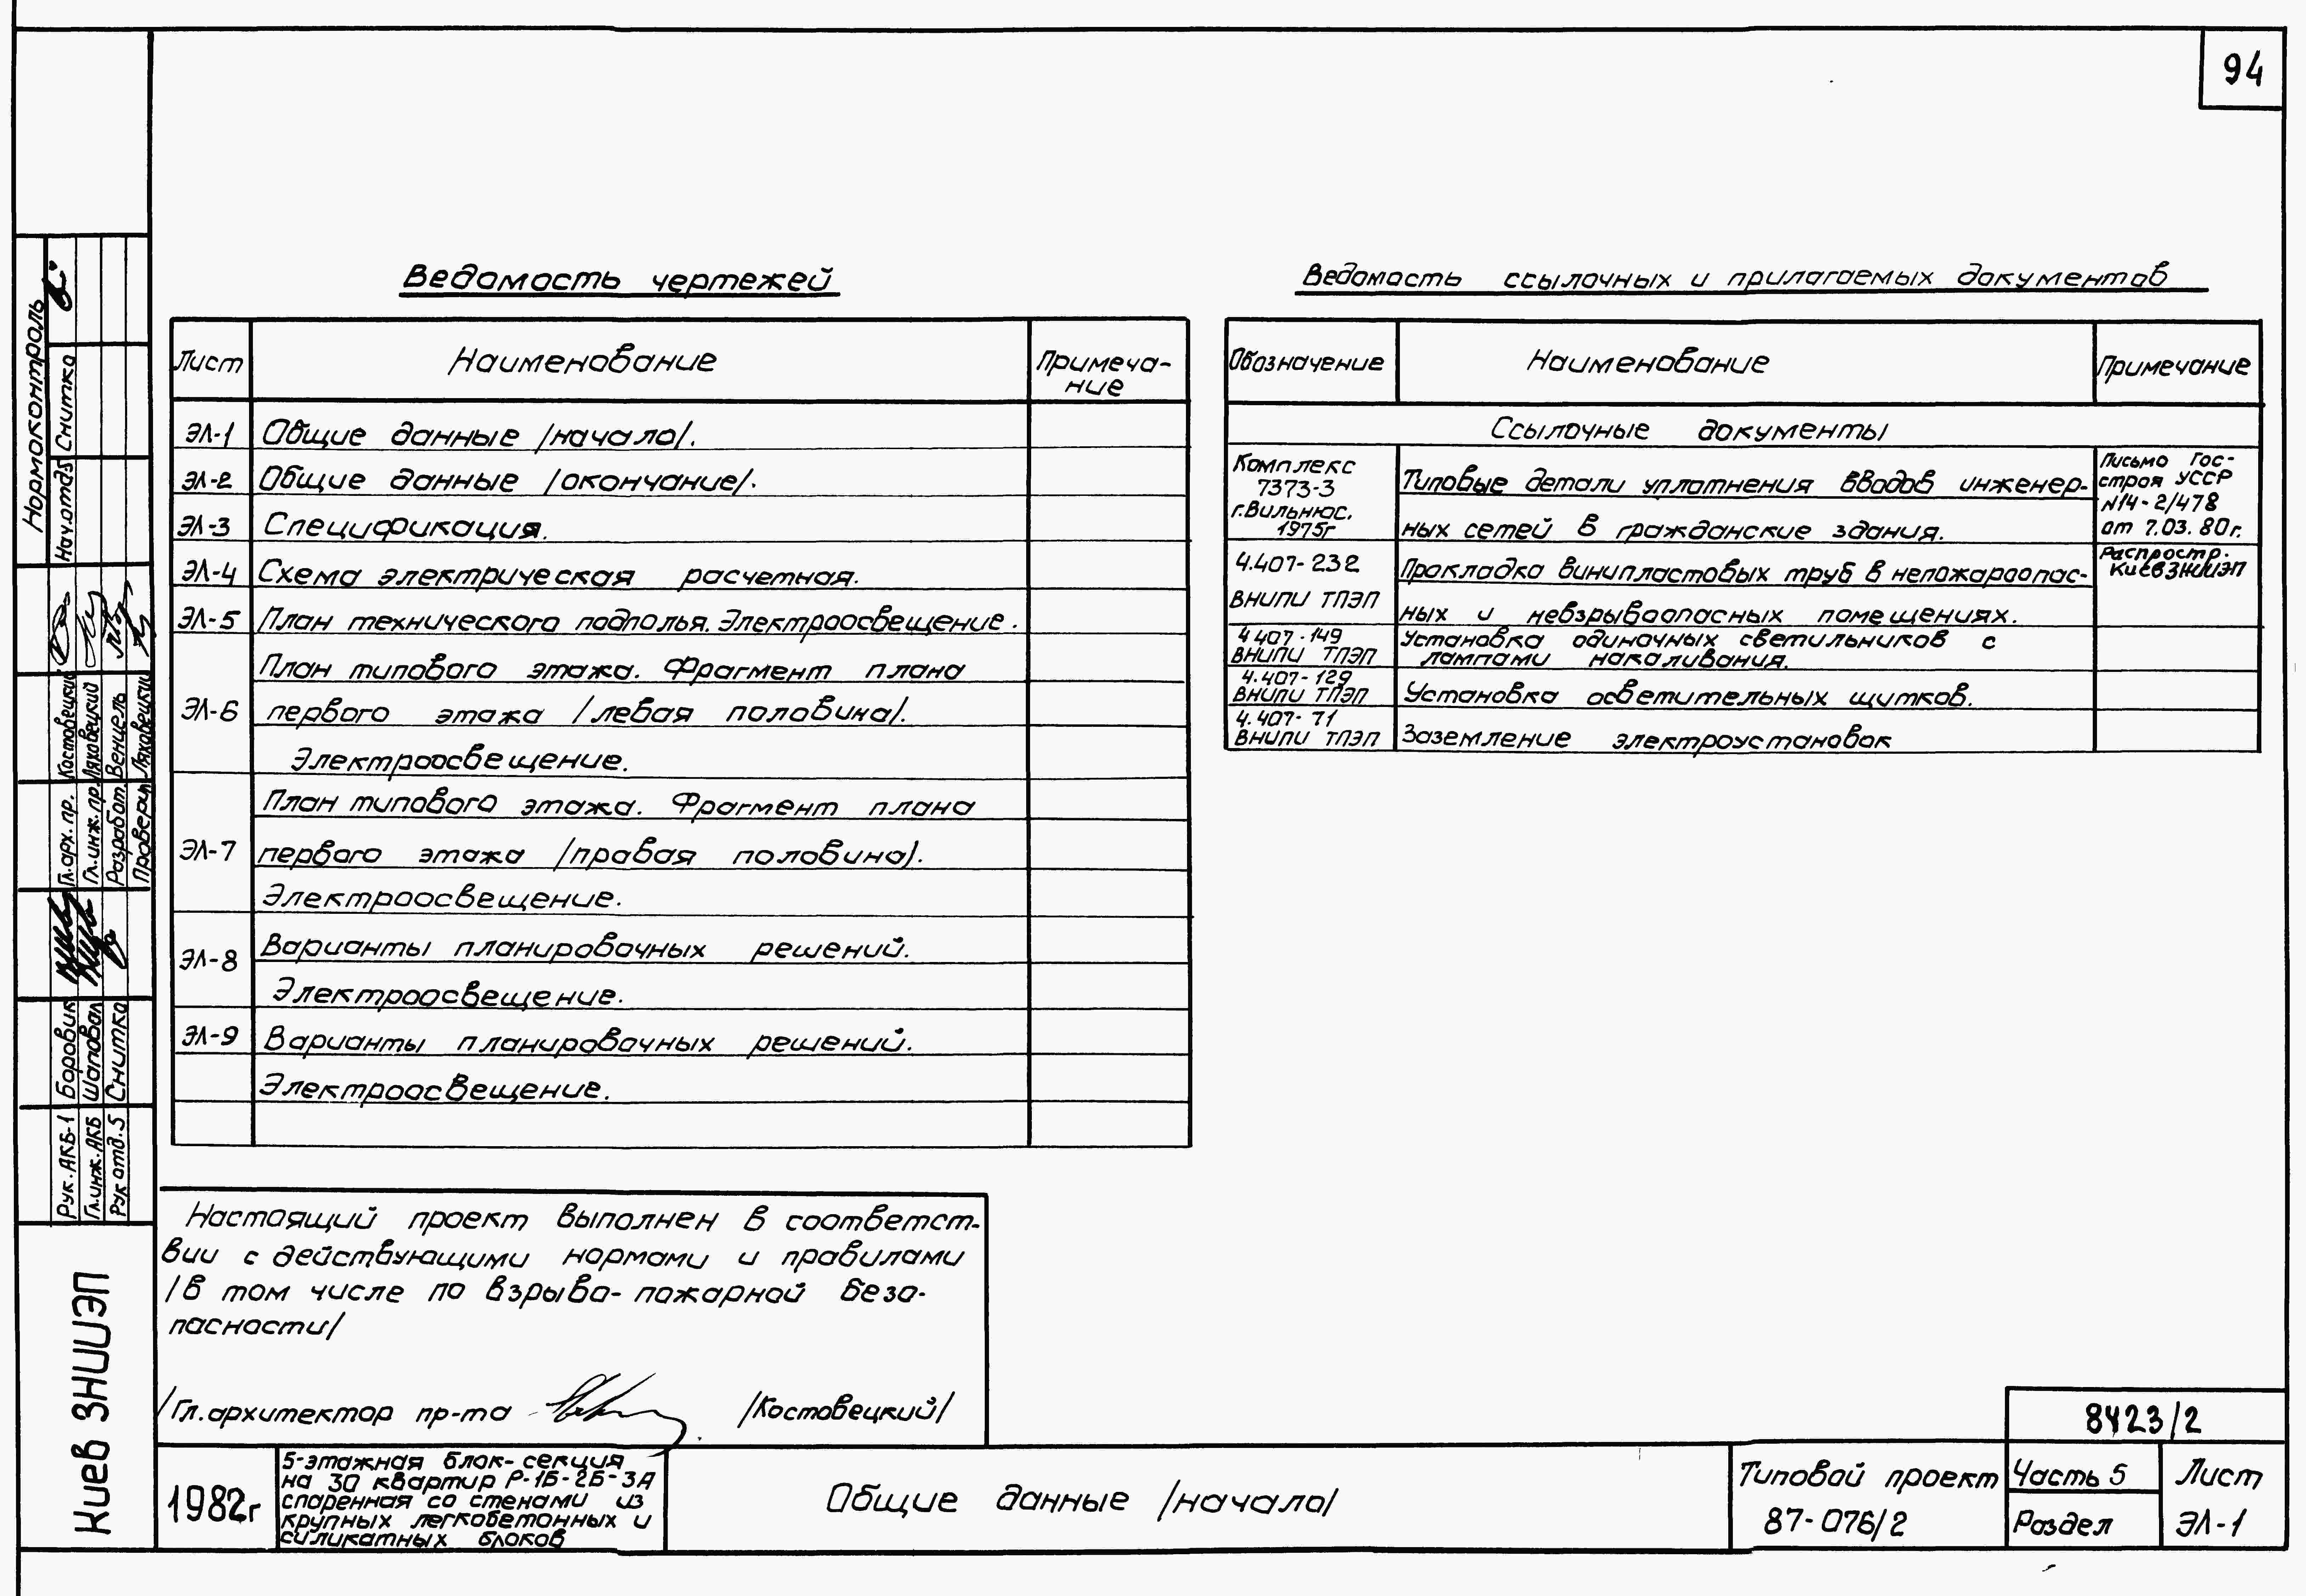 94
Ведомость чертежей
Лист
Наименование
Примеча-
ние
ЭЛ-1 Общие данные /начало/.
ЭЛ-2 Общие данные /окончание/.
ЭЛ-3 Спецификация.
ЭЛ-4 Схема электрическая расчетная.
ЭЛ-5 План технического подполья. Электроосвещение.
План типового этажа. Фрагмент плана
ЭЛ-6 первого этажа /левая половина/.
Электроосвещение.
План типового этажа. Фрагмент плана
ЭЛ-7 первого этажа /правая половина/.
Электроосвещение.
ЭЛ-8 Варианты планировочных решений.
Электроосвещение.
ЭЛ-9 Варианты планировочных решений.
Электроосвещение.
Ведомость ссылочных и прилагаемых документов
Обозначение
Наименование
Примечание
Ссылочные документы
Комплекс
7373-3
г.Вильнюс.
1975г
Типовые детали уплотнения вводов инженер-
ных сетей в гражданские здания.
Письмо Гос-
строя УССР
№14-2/478
от 7.03.80г.
Распростр.
КиевЗНИИЭП
4.407-232
ВНИПИ ТПЭП
Прокладка винипластовых труб в непожароопас-
ных и невзрывоопасных помещениях.
4.407-149
ВНИПИ ТПЭП
Установка одиночных светильников с
лампами накаливания.
4.407-129
ВНИПИ ТПЭП
Установка осветительных щитков.
4.407-71
ВНИПИ ТПЭП
Заземление электроустановок
Настоящий проект выполнен в соответст-
вии с действующими нормами и правилами
/в том числе по взрыво-пожарной безо-
пасности/
/Гл.архитектор пр-та /Костовецкий/
Нормоконтроль
Нач.отд5 Снитко
Гл.арх.пр. Костовецкий
Гл.инж.пр. Ляховецкий
Разработ. Венцель
Проверил Ляховецкий
Рук.АКБ-1 Боровик
Гл.инж.АКБ Шаповал
Рук отд.5 Снитко
Киев ЗНИИЭП
1982г
5-этажная блок-секция
на 30 квартир Р-1Б-2Б-3А
спаренная со стенами из
крупных легкобетонных и
силикатных блоков
Общие данные /начало/
Типовой проект
87-076/2
8423/2
Часть 5
Раздел
Лист
ЭЛ-1